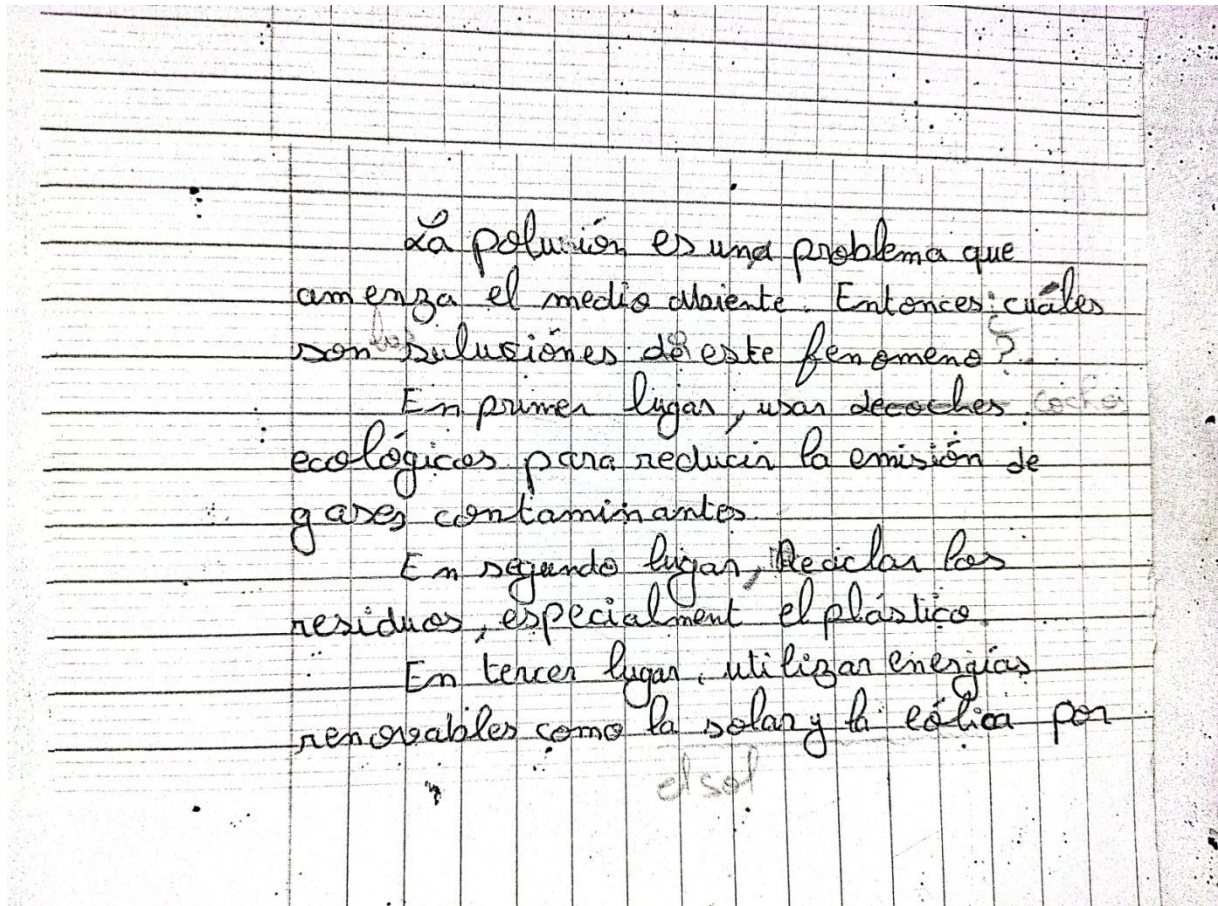 La polución es una problema que
amenza el medio abiente. Entonces ¿cuáles
son los sulusiónes de este fenomeno?
En primer lugar, usar decoches coches
ecológicos para reducir la emisión de
gases contaminantes.
En segundo lugar, Reciclar los
residuos, especialment el plástico.
En tercer lugar, utilizar energías
renovables como la solar y la eólica por
el sol